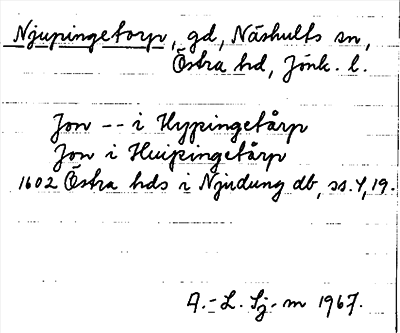 Njupingetorp, gd, Näshults sn,
Östra hd, Jönk. l.
Jon -- i Hypingetårp
Jon i Huipingetårp
1602 Östra hds i Njudung db, ss. 4, 19.
A.-L. Sj-m 1967.